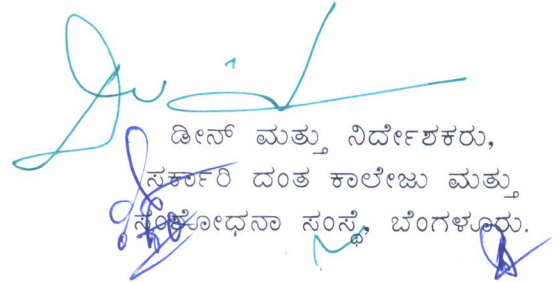 ಡೀನ್ ಮತ್ತು ನಿರ್ದೇಶಕರು,
ಸರ್ಕಾರಿ ದಂತ ಕಾಲೇಜು ಮತ್ತು
ಸಂಶೋಧನಾ ಸಂಸ್ಥೆ, ಬೆಂಗಳೂರು.